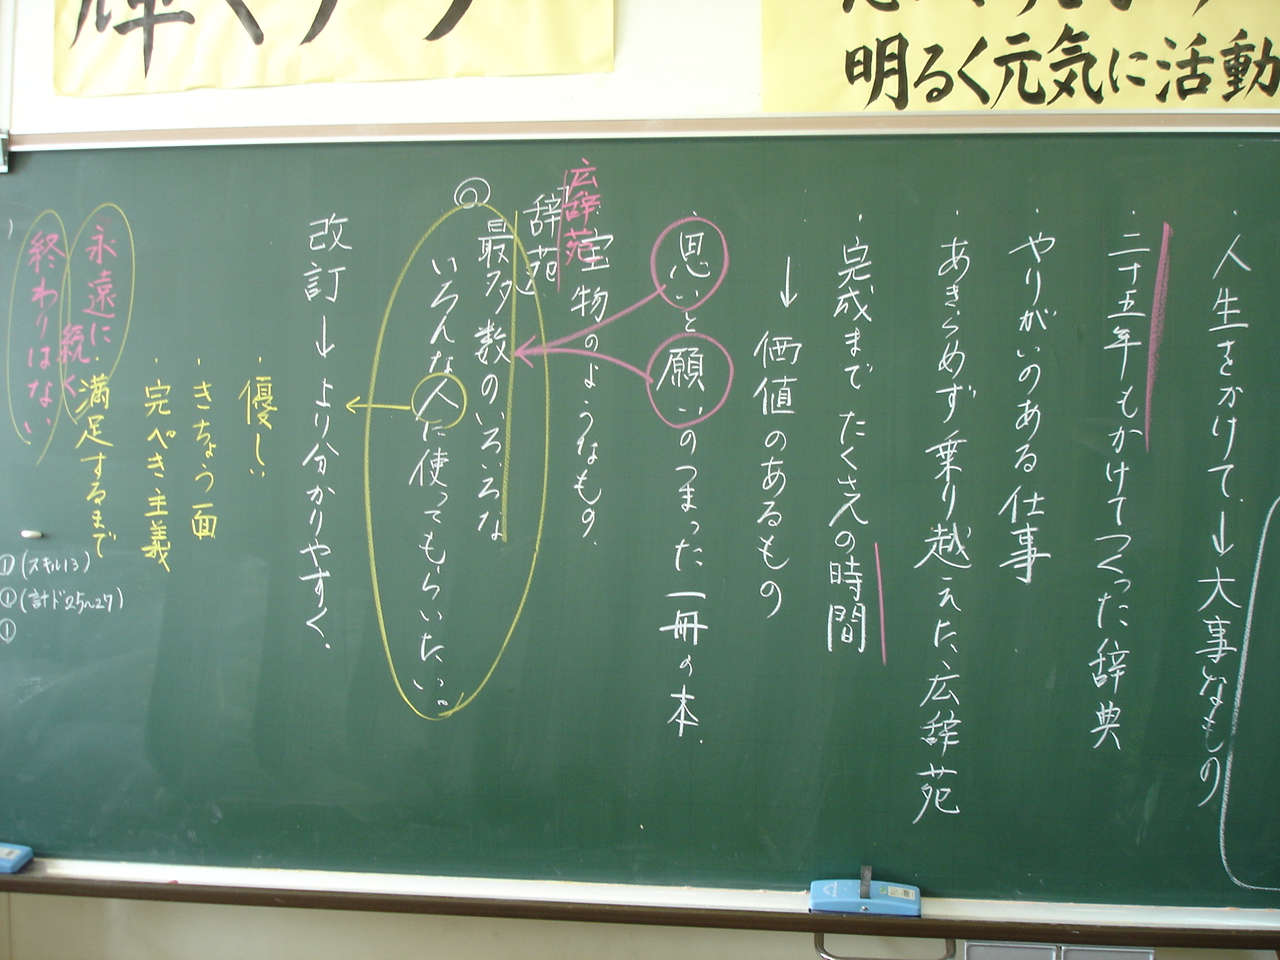 明るく元気に活動
・人生をかけて→大事なもの
・二十五年もかけてつくった辞典
・やりがいのある仕事
・あきらめず乗り越えた広辞苑
・完成までたくさんの時間
→価値のあるもの
・思いと願いのつまった一冊の本.
宝物のようなもの.
広辞苑
辞苑
◎
最多数のいろいろな
いろんな人に使ってもらいたい。
改訂→より分かりやすく.
・優しい
・きちょう面
・完ぺき主義
・満足するまで
永遠に
続く
終わりはない
①(スキル13)
①(計ド25〜27)
①